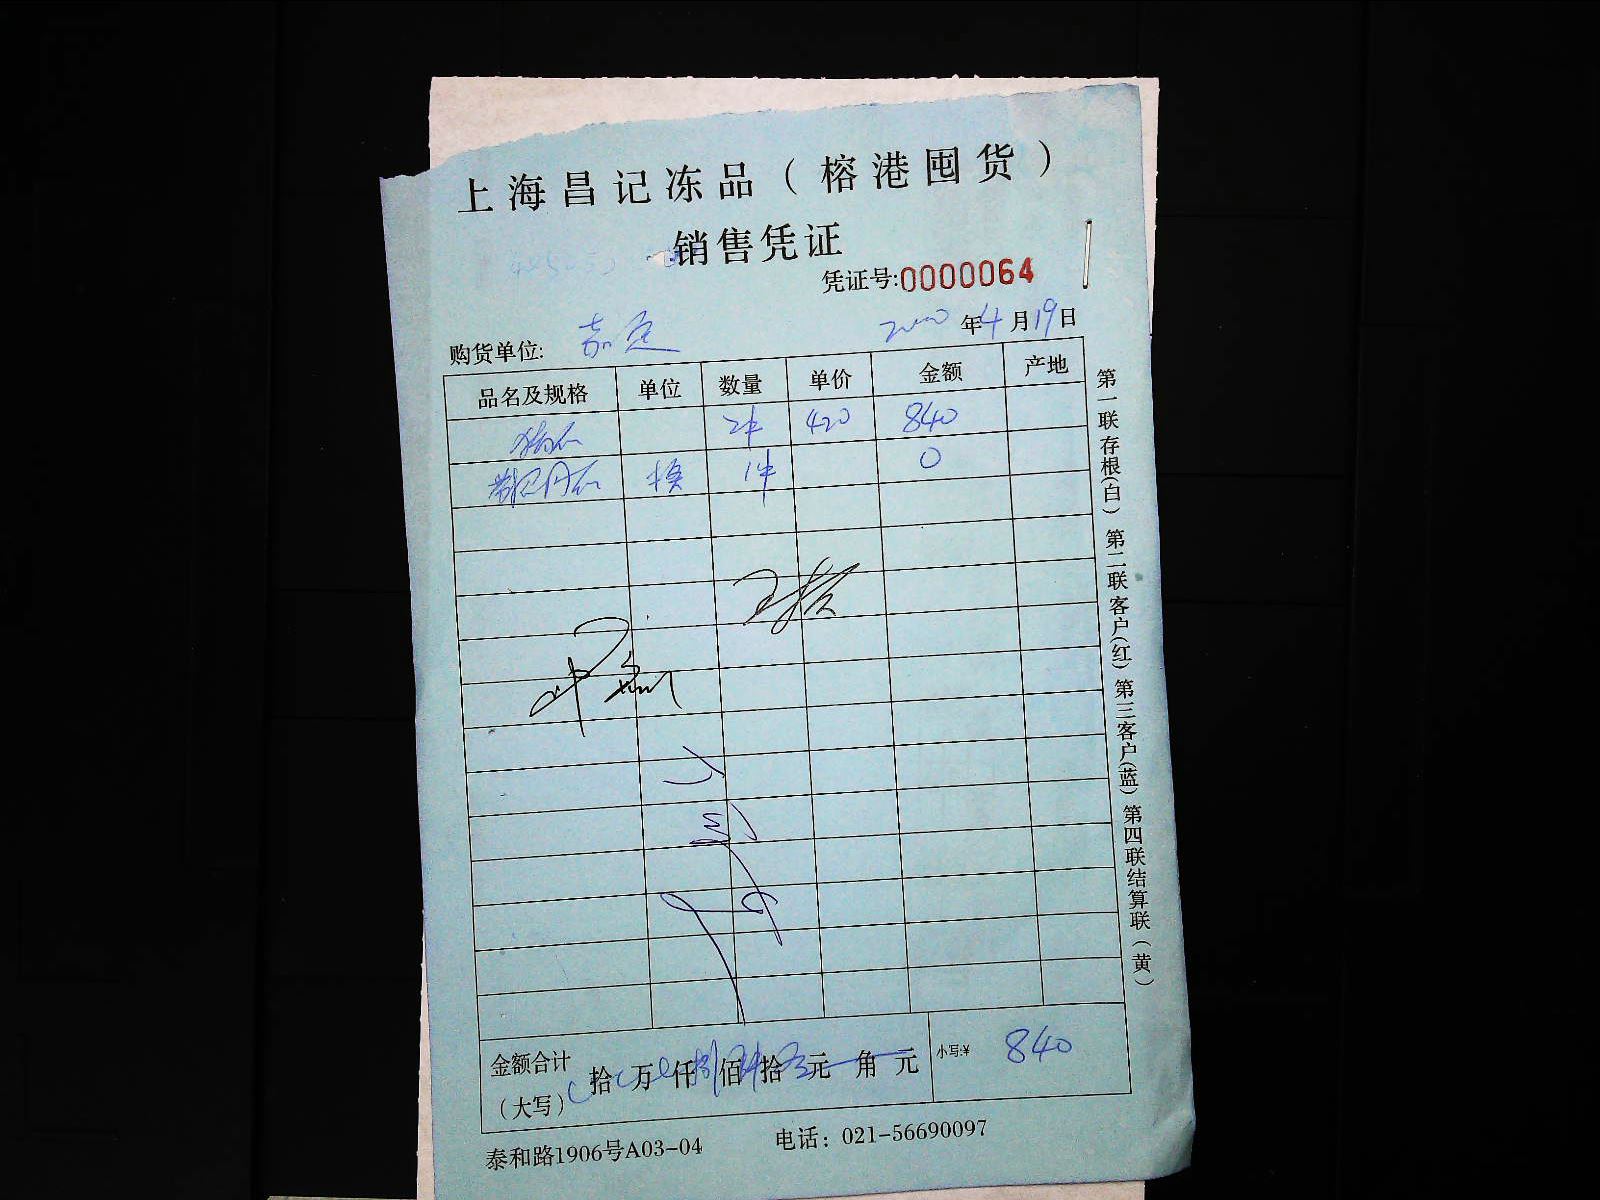 上海昌记冻品（榕港囤货）
销售凭证
凭证号:0000064
年4月19日
购货单位: 嘉定
品名及规格 单位 数量 单价 金额 产地
2件 420 840
换 1件 0
金额合计 拾 万 仟 捌佰 肆拾 零元 角 元 小写:¥ 840
（大写）
泰和路1906号A03-04 电话：021-56690097
第一联存根(白) 第二联客户(红) 第三客户(蓝) 第四联结算联（黄）